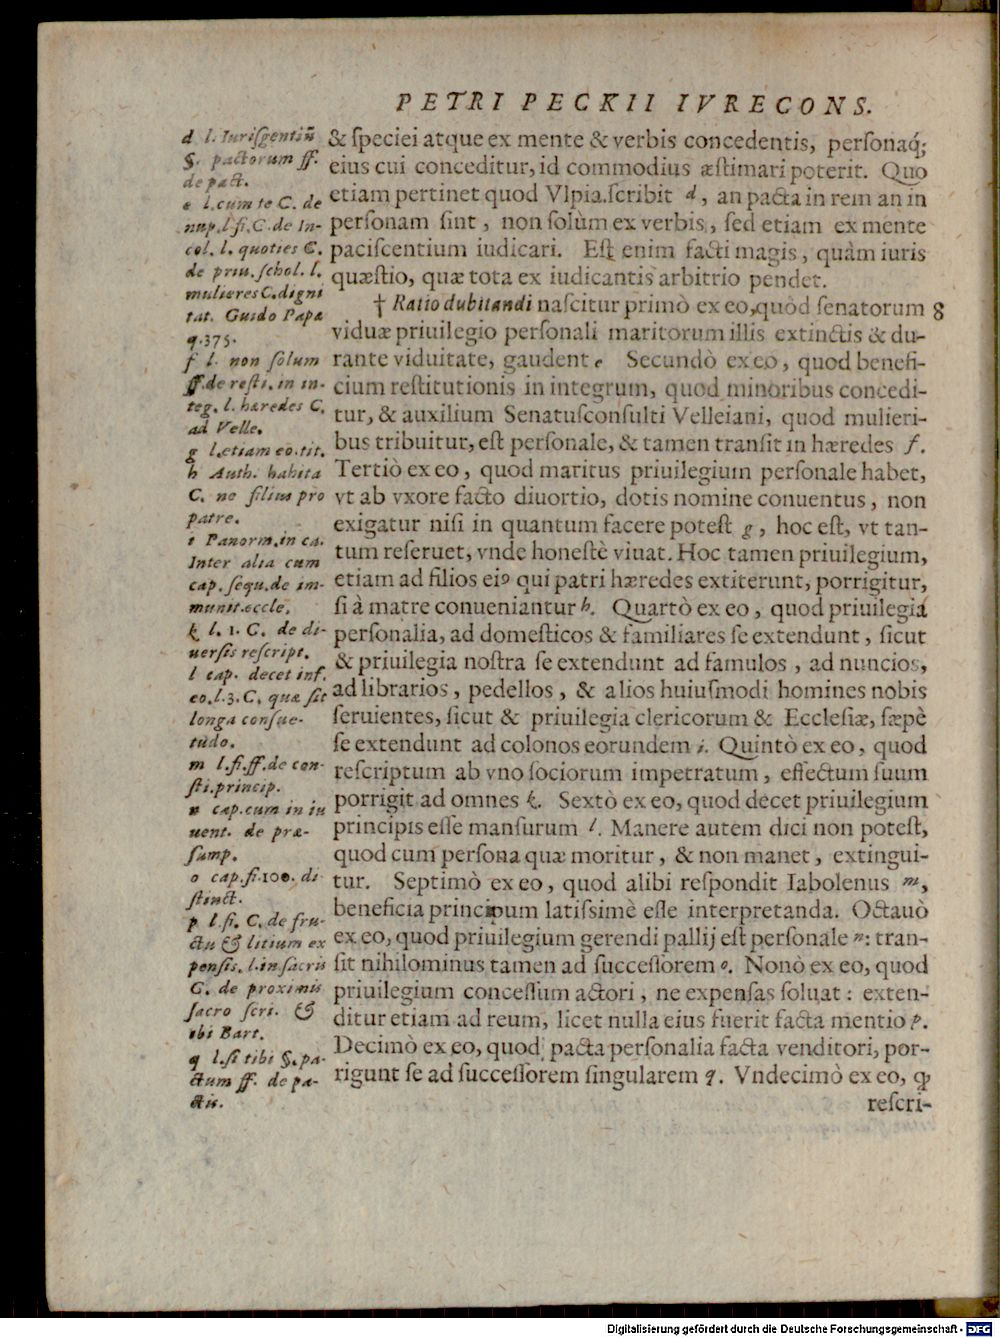 PETRI PECKII IVRECONS.
d l. Iurisgentiũ
§. pactorum ff.
de pact.
e l.cum te C. de
nup.l.fi.C.de In-
col. l. quoties C.
de priu.schol. l.
mulieres C.digni
tat. Guido Papæ
q.375.
f l. non solum
ff.de resti. in in-
teg. l. hæredes C.
ad Velle.
g l.etiam eo.tit.
h Auth. habita
C. ne filius pro
patre.
i Panorm.in ca.
Inter alia cum
cap. sequ.de im-
munit.eccle.
k l. 1. C. de di-
uersis rescript.
l cap. decet inf.
eo.l.3.C. quæ sit
longa consue-
tudo.
m l.fi.ff.de con-
sti.princip.
n cap.cum in iu
uent. de præ-
sump.
o cap.fi.100. di
stinct.
p l.fi. C. de fru-
ctu & litium ex
pensis. l.in sacris
C. de proximis
sacro scri. &
ibi Bart.
q l.si tibi §.pa-
ctum ff. de pa-
ctis.
& ſpeciei atque ex mente & verbis concedentis, perſonaq́;
eius cui conceditur, id commodius æſtimari poterit. Quo
etiam pertinet quod Vlpia.ſcribit d, an pacta in rem an in
perſonam ſint, non ſolùm ex verbis, ſed etiam ex mente
paciſcentium iudicari. Eſt enim facti magis, quàm iuris
quæſtio, quæ tota ex iudicantis arbitrio pendet.
† Ratio dubitandi naſcitur primò ex eo, quòd ſenatorum 8
viduæ priuilegio perſonali maritorum illis extinctis & du-
rante viduitate, gaudent e Secundò ex eo, quod benefi-
cium reſtitutionis in integrum, quod minoribus concedi-
tur, & auxilium Senatuſconſulti Velleiani, quod mulieri-
bus tribuitur, eſt perſonale, & tamen tranſit in hæredes f.
Tertiò ex eo, quod maritus priuilegium perſonale habet,
vt ab vxore facto diuortio, dotis nomine conuentus, non
exigatur niſi in quantum facere poteſt g, hoc eſt, vt tan-
tum reſeruet, vnde honeſtè viuat. Hoc tamen priuilegium,
etiam ad filios eiꝰ qui patri hæredes extiterunt, porrigitur,
ſi à matre conueniantur h. Quartò ex eo, quod priuilegia
perſonalia, ad domeſticos & familiares ſe extendunt, ſicut
& priuilegia noſtra ſe extendunt ad famulos, ad nuncios,
ad librarios, pedellos, & alios huiuſmodi homines nobis
ſeruientes, ſicut & priuilegia clericorum & Eccleſiæ, ſæpè
ſe extendunt ad colonos eorundem i. Quintò ex eo, quod
reſcriptum ab vno ſociorum impetratum, effectum ſuum
porrigit ad omnes k. Sextò ex eo, quod decet priuilegium
principis eſſe manſurum l. Manere autem dici non poteſt,
quod cum perſona quæ moritur, & non manet, extingui-
tur. Septimò ex eo, quod alibi reſpondit Iabolenus m,
beneficia principum latiſſimè eſſe interpretanda. Octauò
ex eo, quod priuilegium gerendi pallij eſt perſonale n: tran-
ſit nihilominus tamen ad ſucceſſorem o. Nonò ex eo, quod
priuilegium conceſſum actori, ne expenſas ſoluat: exten-
ditur etiam ad reum, licet nulla eius fuerit facta mentio p.
Decimò ex eo, quod pacta perſonalia facta venditori, por-
rigunt ſe ad ſucceſſorem ſingularem q. Vndecimò ex eo, ꝙ
reſcri-
Digitalisierung gefördert durch die Deutsche Forschungsgemeinschaft - DFG